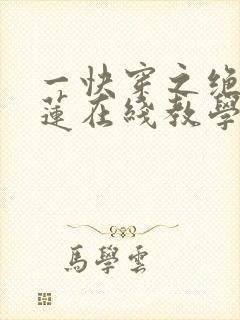 一快穿之绝
蓮在綫教學
馬學雲